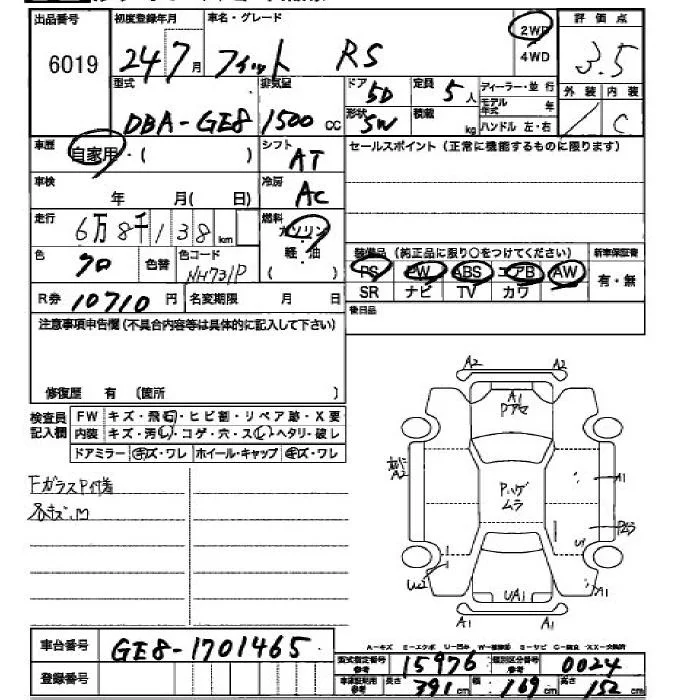 出品番号 初度登録年月 車名・グレード 2WD 評価点
6019 24 7月 フィット RS 4WD 3.5
型式 排気量 ドア 5D 定員 5人 ディーラー・並行 外装 内装
DBA-GE8 1500cc 形状 SW 積載 kg モデル年式 年 ハンドル 左・右 C
車歴 自家用・( ) シフト AT セールスポイント (正常に機能するものに限ります)
車検 年 月( 日) 冷房 AC
走行 6万8千138km 燃料 ガソリン 軽・油 ( )
装備品 (純正品に限り○をつけてください) 新車保証書
色 クロ 色替 色コード NH731P PS PW ABS エアB AW 有・無
R券 10710円 名変期限 月 日 SR ナビ TV カワ
注意事項申告欄(不具合内容等は具体的に記入して下さい) 後日品
修復歴 有 (箇所 )
検査員記入欄 FW キズ・飛石・ヒビ割・リペア跡・X要
内装 キズ・汚レ・コゲ・穴・スレ・ヘタリ・破レ
ドアミラー キズ・ワレ ホイール・キャップ キズ・ワレ
A2 A2
A1
Fガラス
A2
A1
ムラ
U1
A1
UA1
A1 A1
A-キズ E-エクボ
車台番号 GE8-1701465
型式指定番号 参考 15976 類別区分番号 参考 0024
登録番号 長さ 391cm 幅 169cm 高さ 152cm